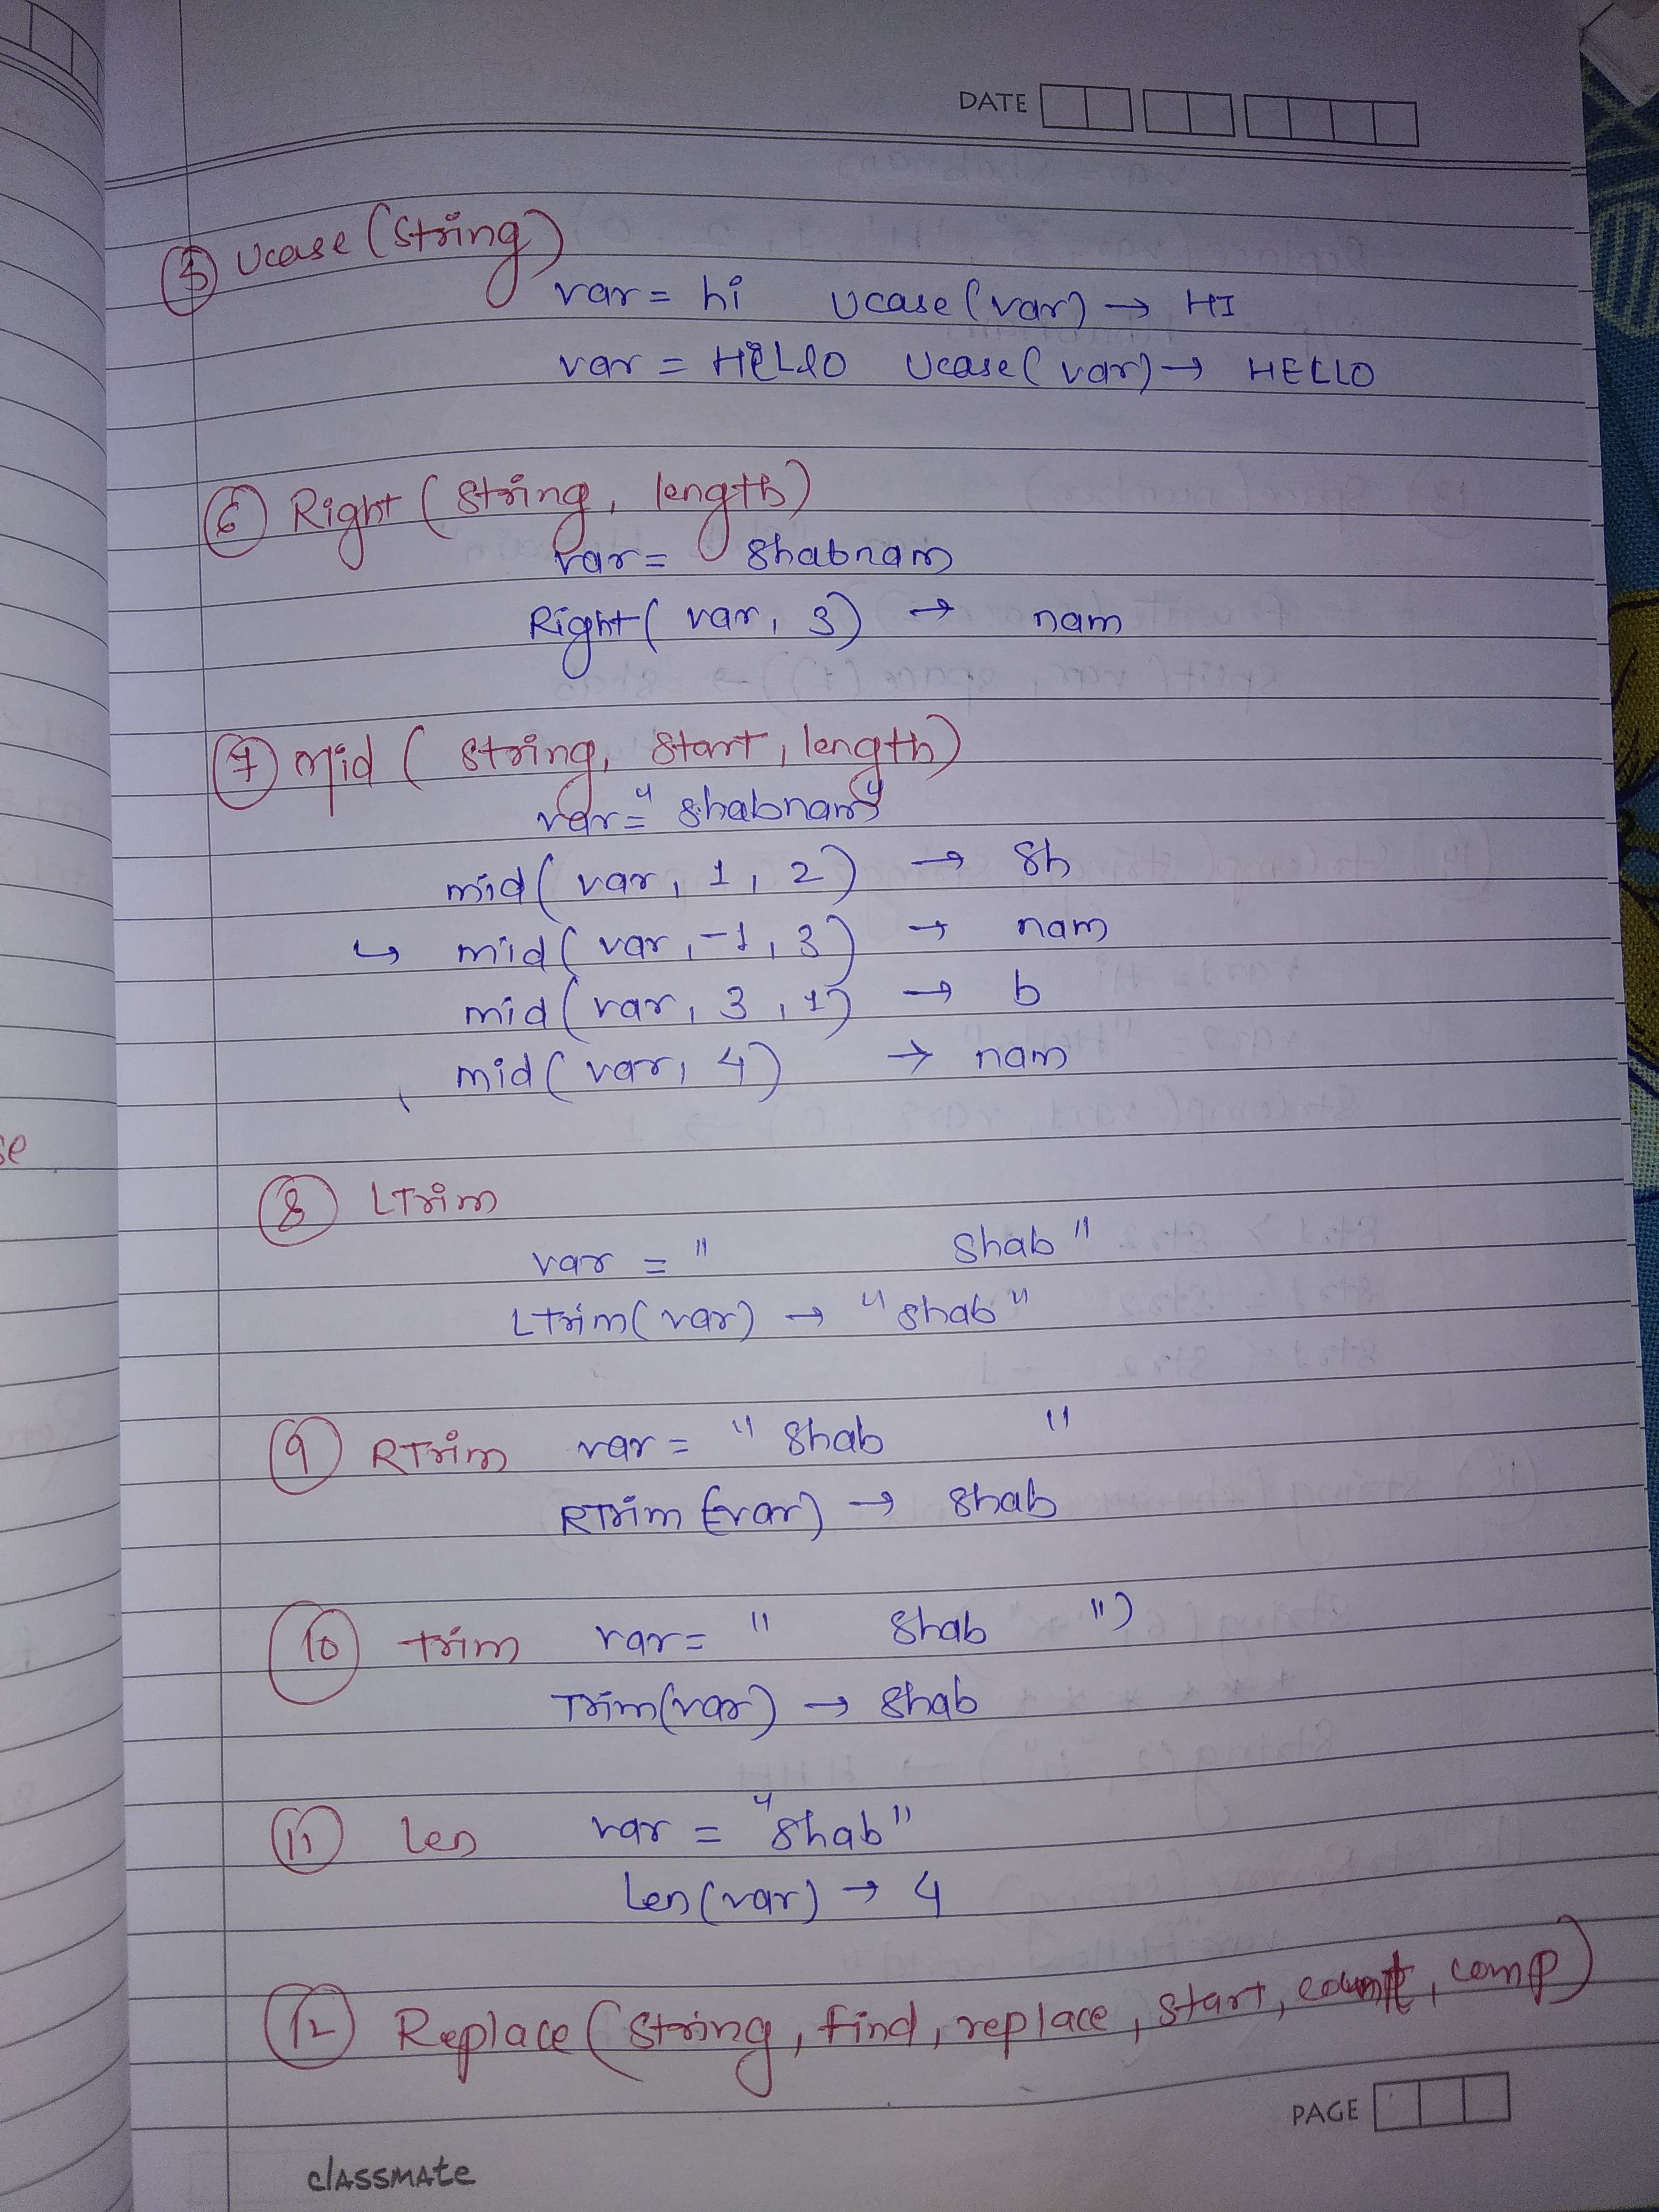 DATE
⑤ Ucase (String)
var = hi Ucase (var) → HI
var = HiLlO Ucase( var) → HELLO
⑥ Right ( String, length)
var = Shabnam
Right( var, 3) → nam
⑦ Mid ( String, Start, length)
var = "Shabnam"
mid( var, 1, 2) → Sh
↳ mid( var, -1, 3) → nam
mid( var, 3, 1) → b
mid( var, 4) → nam
⑧ LTrim
var = " Shab"
LTrim( var) → "Shab"
⑨ RTrim var = " Shab "
RTrim (var) → Shab
⑩ trim var= " Shab ")
Trim(var) → Shab
⑪ Len var = "Shab"
Len(var) → 4
⑫ Replace ( String, find, replace, start, count, comp)
PAGE
classmate